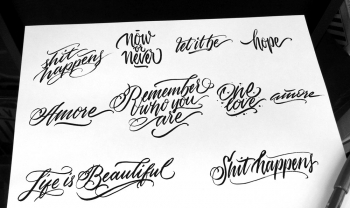 shit
happens
now
or
never
let it be
hope
Amore
Remember
who you
are
One
love
amore
Life is Beautiful
Shit happens